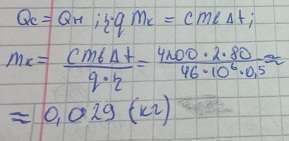 Qс = Qн ; η·q mк = cmв Δt ;
mк = cmв Δt / q·η = 4200·2·80 / 46·10⁶·0,5 ≈
≈ 0,029 (кг)